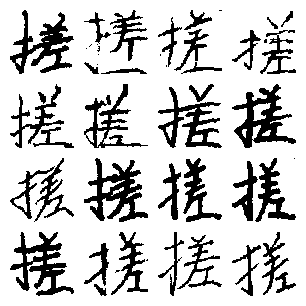 搓搓搓搓
搓搓搓搓
搓搓搓搓
搓搓搓搓